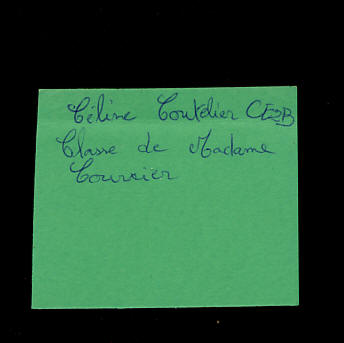 Céline Coutelier CE2B
Classe de Madame
Courrier